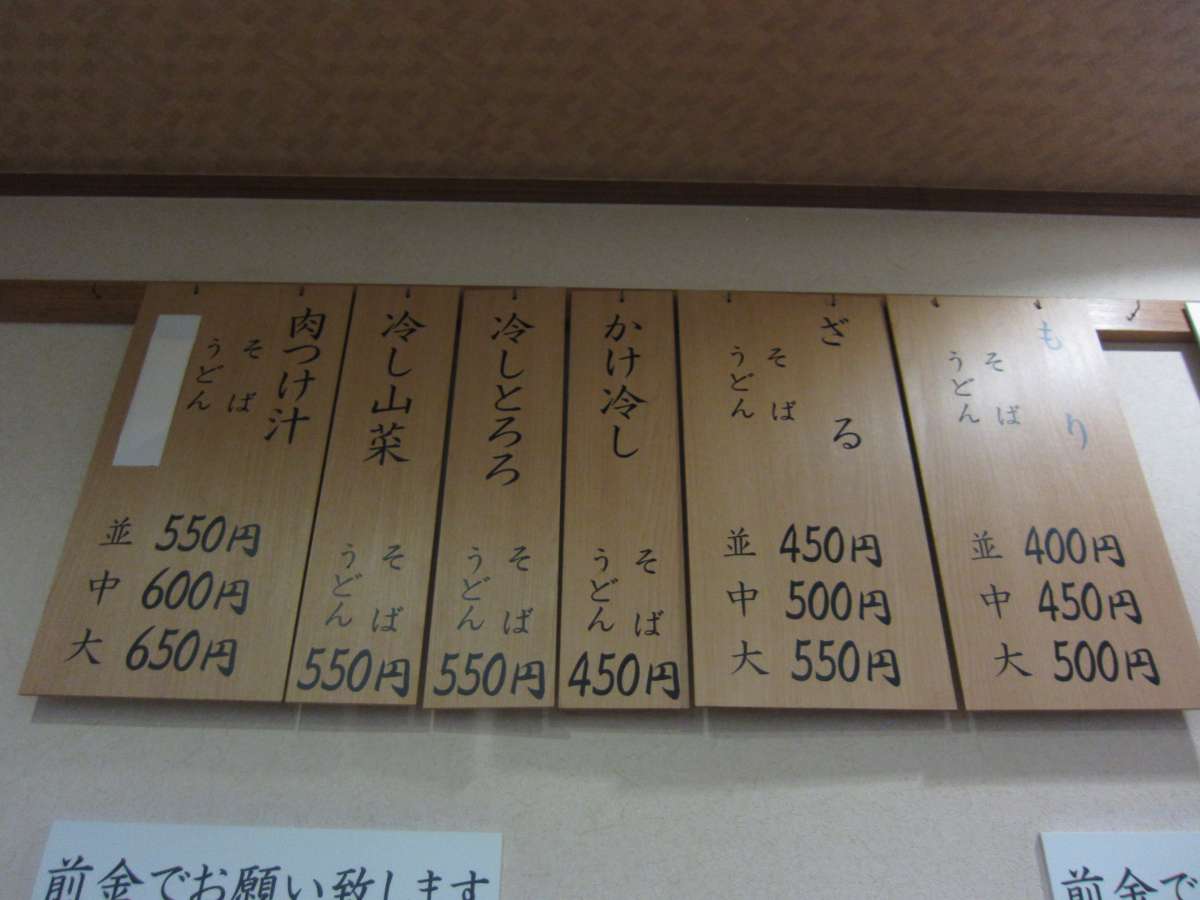 もり
そば
うどん
並 400円
中 450円
大 500円
ざる
そば
うどん
並 450円
中 500円
大 550円
かけ冷し
そば
うどん
450円
冷しとろろ
そば
うどん
550円
冷し山菜
そば
うどん
550円
肉つけ汁
そば
うどん
並 550円
中 600円
大 650円
前金でお願い致します
前金で